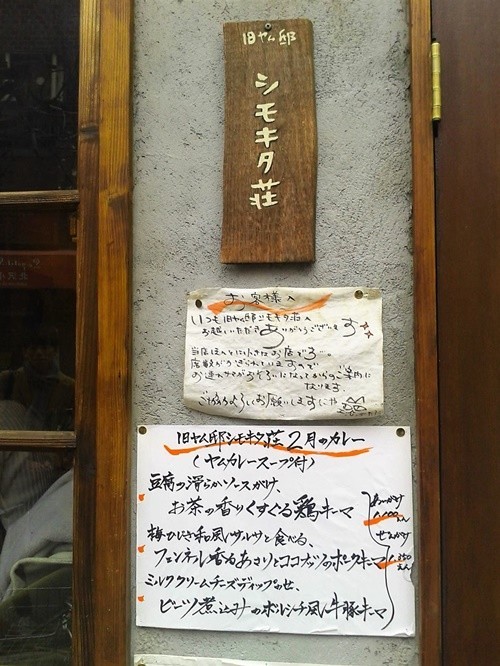 旧ヤム邸
シモキタ荘
お客様へ
いつも旧ヤム邸シモキタ荘へ
お越しいただきありがとうございます
当店ほんとに小さなお店でして…。
席数がかぎられていますので
お連れサマがおそろいになってからのご案内に
なります。
ご協力よろしくお願いしますにゃ
旧ヤム邸シモキタ荘 2月のカレー
(ヤムカレースープ付)
豆腐の滑らかソースがけ、
お茶の香りくすぐる鶏キーマ
梅ひじき和風サルサと食べる、
フェンネル香るあさりとココナッツのポークキーマ
ミルククリームチーズディップのせ、
ビーツ煮込みのボルシチ風牛豚キーマ
あいがけ
ぜんがけ